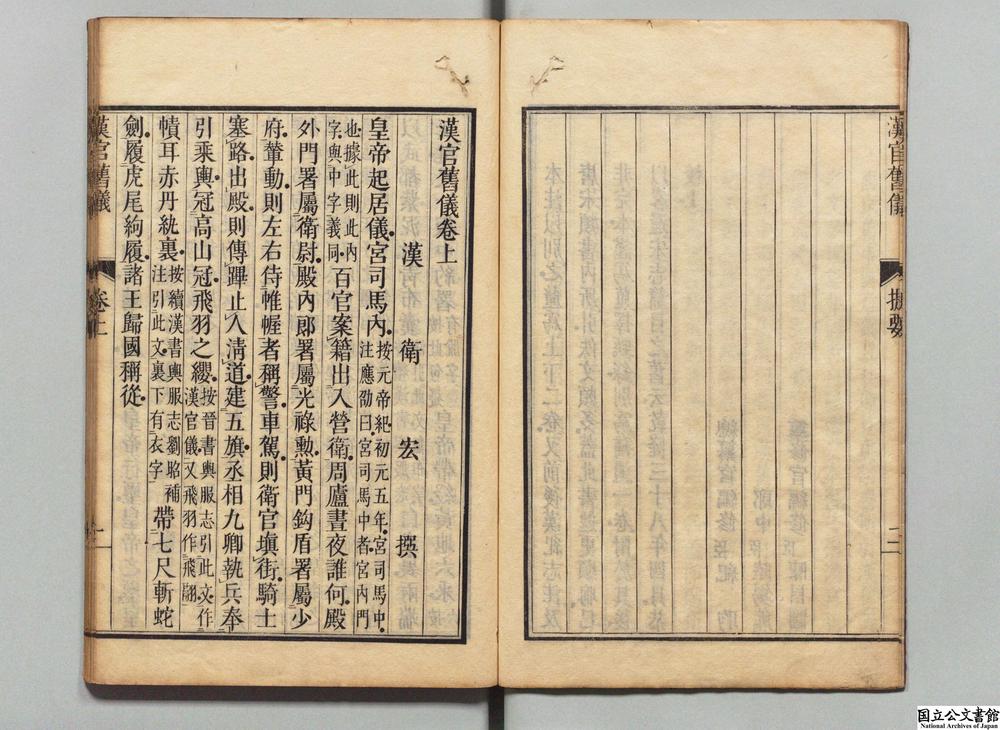 漢官舊儀
提要
二
漢官舊儀卷上
漢 衛 宏 撰
皇帝起居儀宮司馬內按元帝紀初元五年宮司馬中注應劭曰宮司馬中者宮內門
也據此則此內字與中字義同百官案籍出入營衛周廬晝夜誰何殿
外門署屬衛尉殿內郎署屬光祿勳黃門鉤盾署屬少
府輦動則左右侍帷幄者稱警車駕則衛官塡街騎士
塞路出殿則傳蹕止人清道建五旗丞相九卿執兵奉
引乘輿冠高山冠飛羽之纓按晉書輿服志引此文作漢官儀又飛羽作飛翮
幘耳赤丹紈裏按續漢書輿服志劉昭補注引此文裏下有衣字帶七尺斬蛇
劍履虎尾絇履諸王歸國稱從
漢官舊儀
卷上
一
国立公文書館
National Archives of Japan